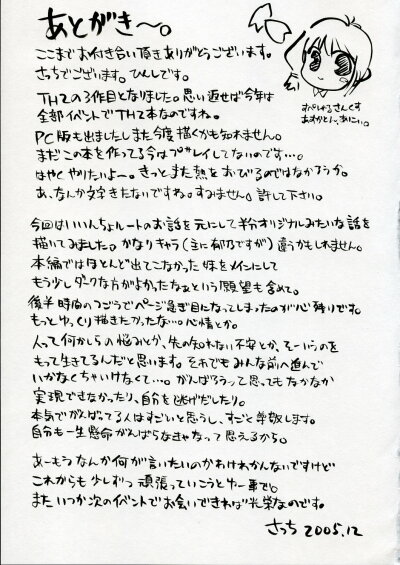 あとがき〜。
ここまでお付き合い頂きありがとうございます。
さっちでございます。ひんしです。
TH2の3作目となりました。思い返せば今年は
全部イベントでTH2本なのですね。
PC版も出ましたしまた今度描くかも知れません。
まだこの本を作ってる今はプレイしてないのです…。
はやくやりたいよー。きっとまた熱をおびるのではなかろうか。
あ、なんか文字きたないですね。すみません。許して下さい。
すぺしゃるさんくす
あすかとん、あにぃ。
今回はいいんちょルートのお話を元にして半分オリジナルみたいな話を
描いてみました。かなりキャラ(主に郁乃ですが)違うかもしれません。
本編ではほとんど出てこなかった妹をメインにして
もう少しダークな方がよかったなぁという願望も含めて。
後半時間のつごうでページ急ぎ目になってしまったのが心残りです。
もっとゆっくり描きたかったな…。心情とか。
人って何かしらの悩みとか、先の知れない不安とか、そーいうのを
もって生きてるんだと思います。それでもみんな前へ進んで
いかなくちゃいけなくて…。がんばろうって思ってもなかなか
実現できなかったり、自分を逃げだしたり。
本気でがんばってる人はすごいと思うし、すごと尊敬します。
自分も一生懸命がんばらなきゃなって思えるから。
あーもうなんか何が言いたいのかわけわかんないですけど
これからも少しずつ頑張っていこうとゆー事で。
またいつか次のイベントでお会いできれば光栄なのです。
さっち 2005.12